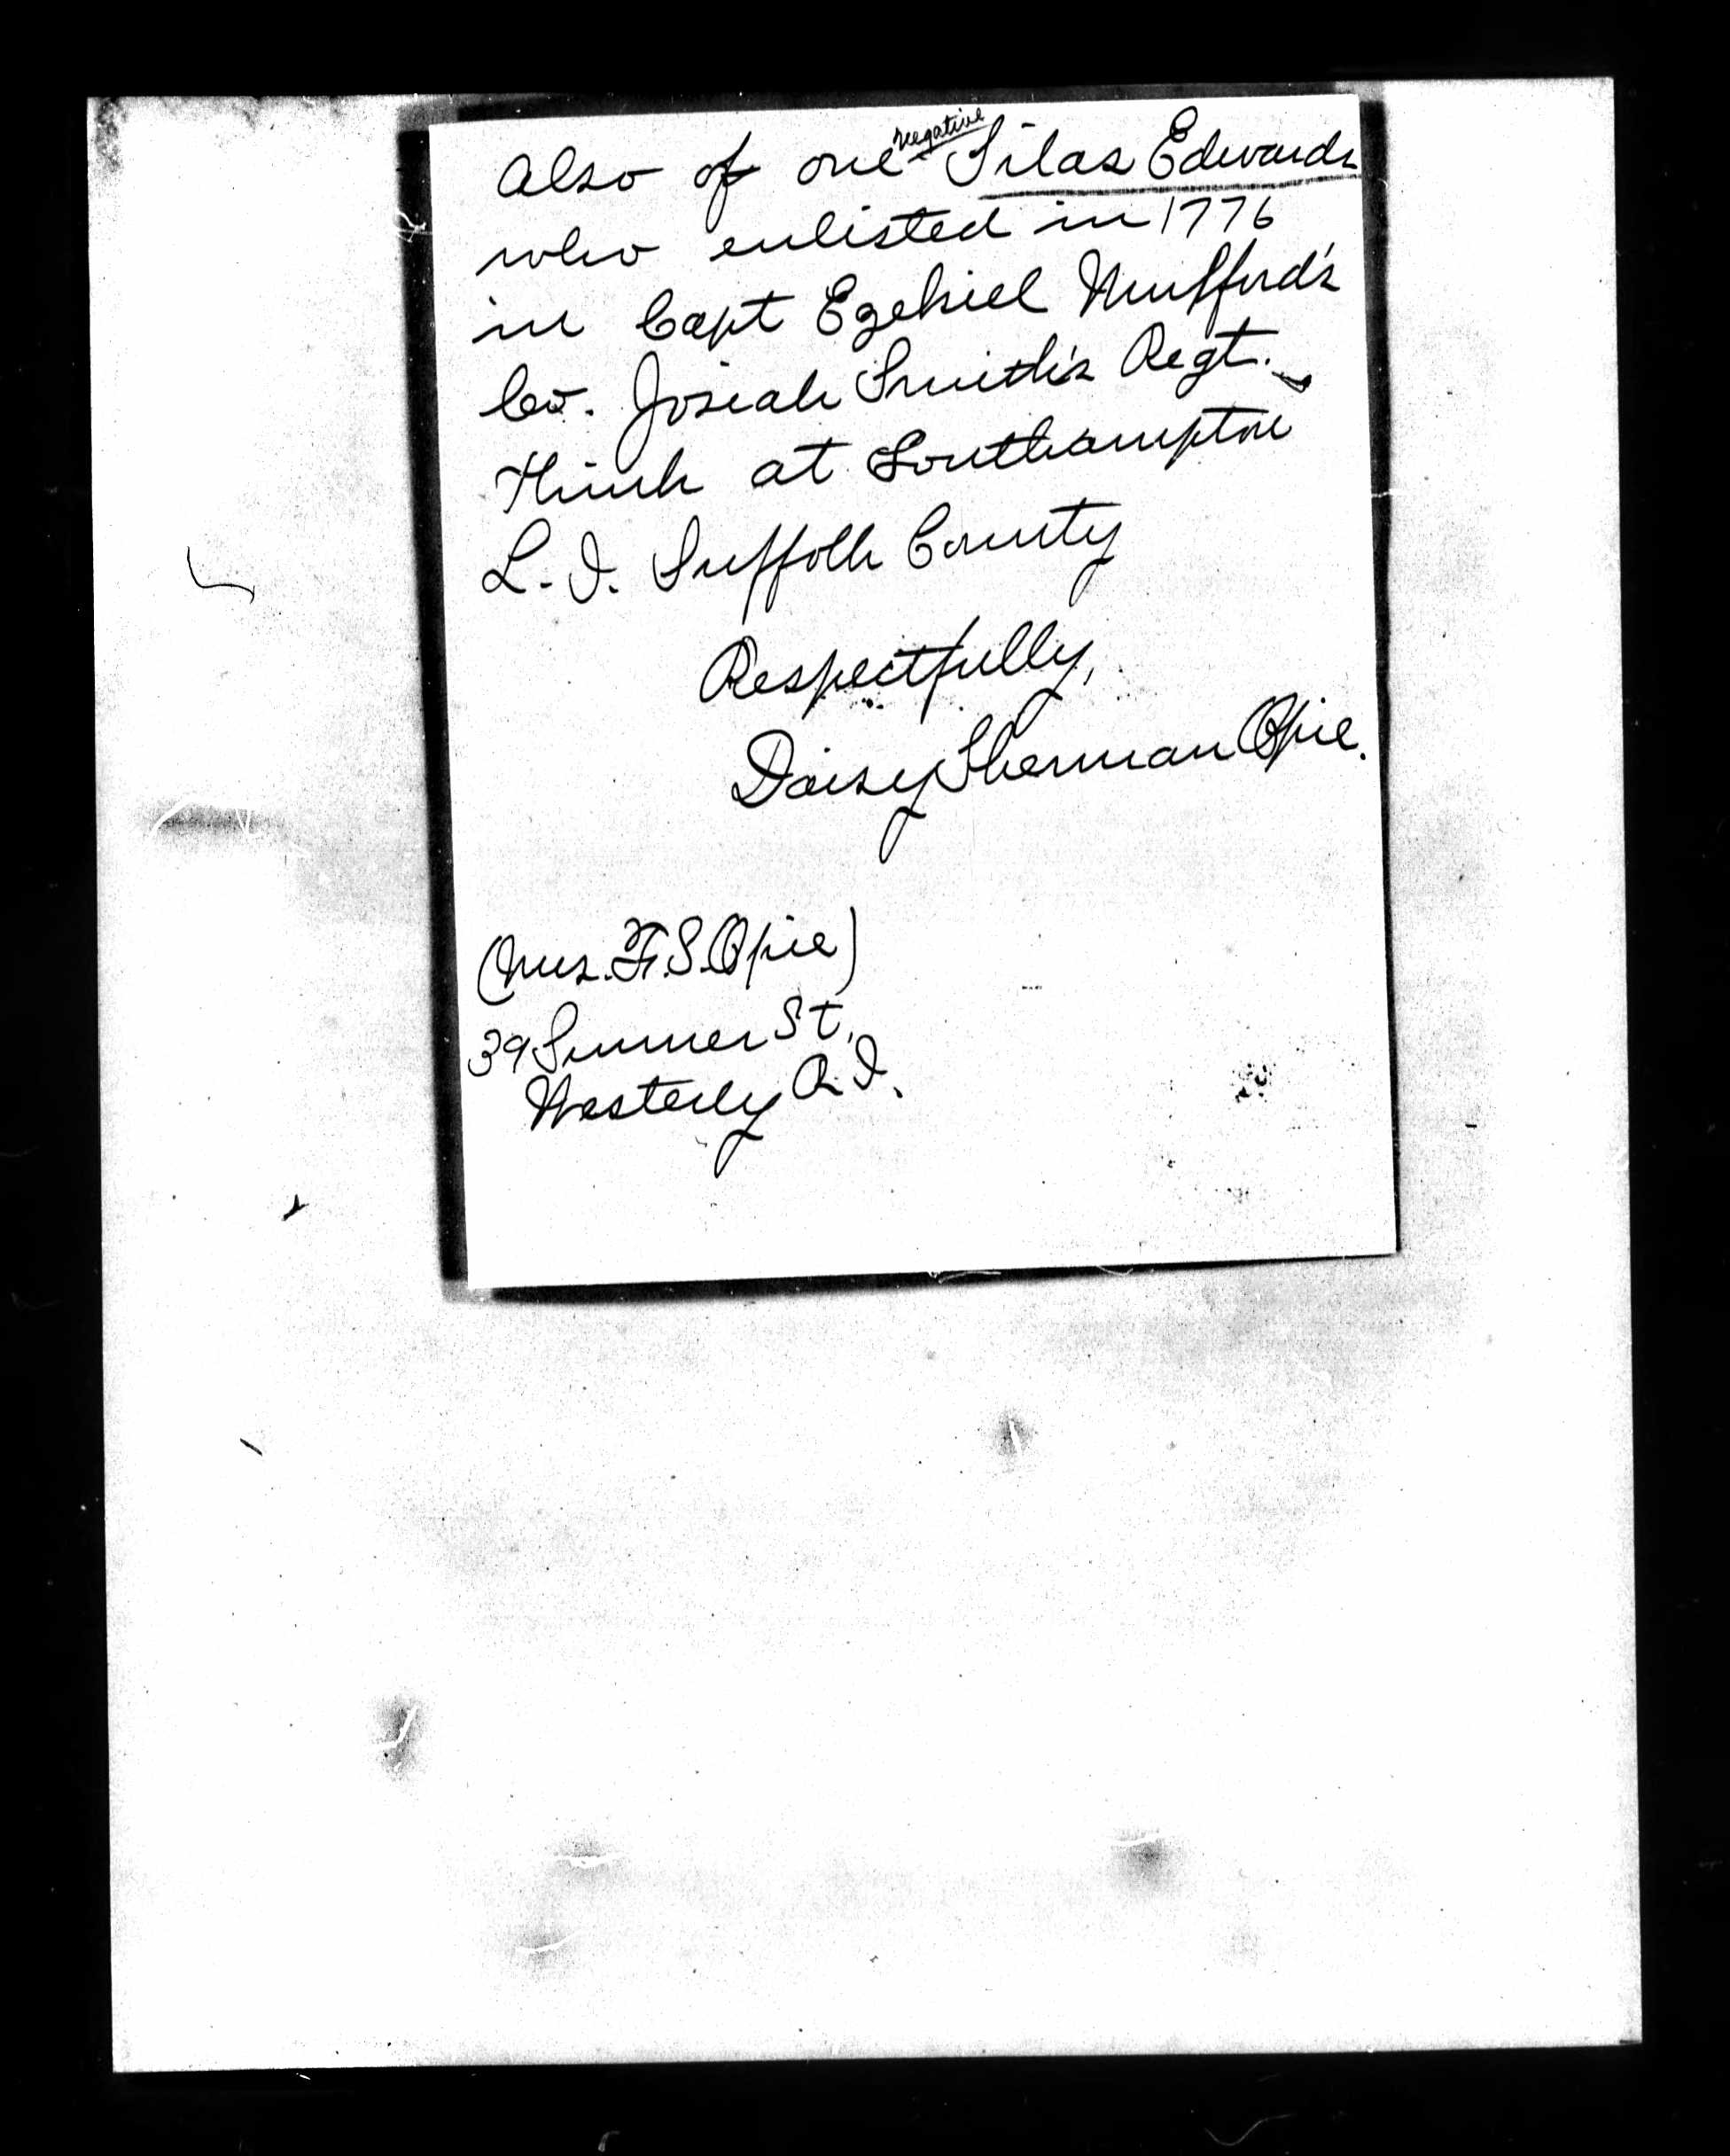 negative
Also of one Silas Edwards
who enlisted in 1776
in Capt Ezekiel Mufford's
Co. Josiah Smith's Regt.
Think at Southampton
L. I. Suffolk County
Respectfully,
Daisy Sherman Opie.
(Mrs. F. S. Opie)
39 Summer St,
Westerly R. I.